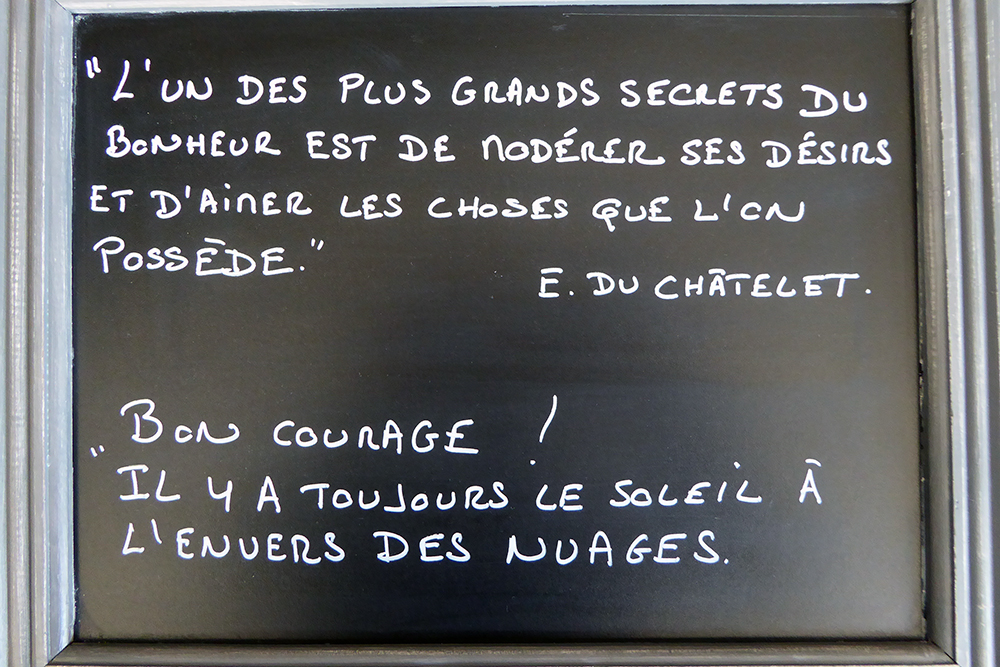 "L'UN DES PLUS GRANDS SECRETS DU
BONHEUR EST DE MODÉRER SES DÉSIRS
ET D'AIMER LES CHOSES QUE L'ON
POSSÈDE."
E. DU CHÂTELET.
BON COURAGE !
"IL Y A TOUJOURS LE SOLEIL À
L'ENVERS DES NUAGES.